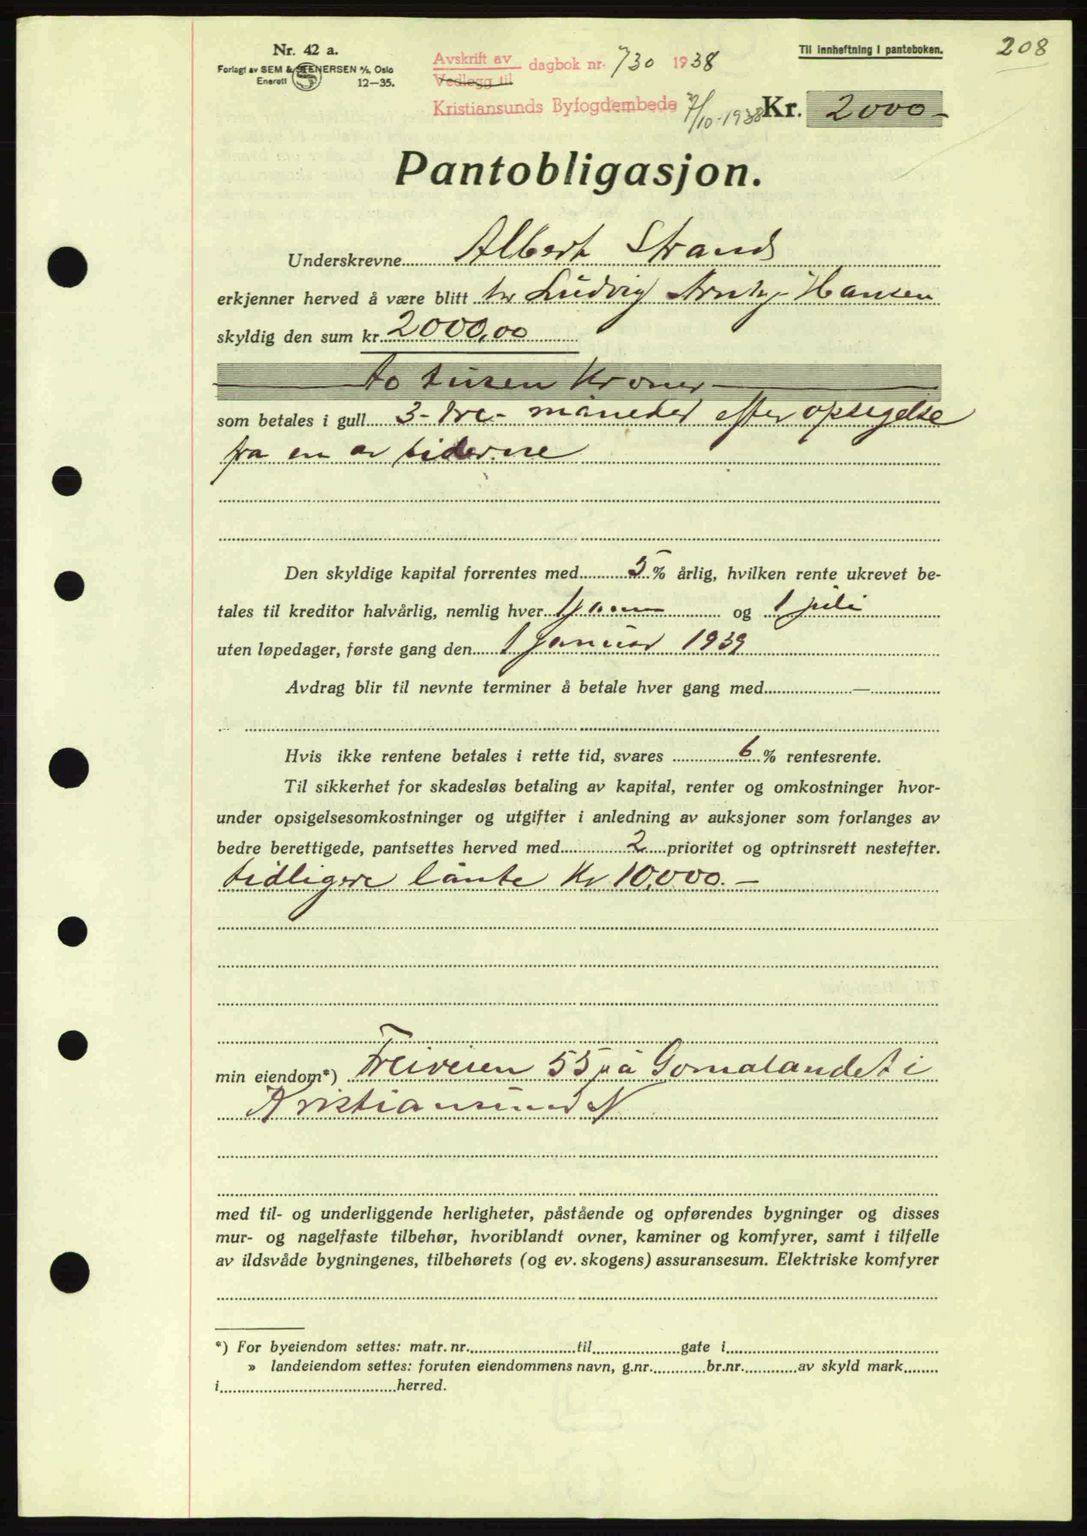 Nr. 42 a.
Forlagt av SEM & STENERSEN A/S, Oslo
Enerett 12—35.
Avskrift av
Vedlegg til
dagbok nr. 730 1938
Kristiansunds Byfogdembede 7/10-1938
Til innheftning i panteboken.
208
Kr. 2000-
Pantobligasjon.
Underskrevne Albert Strand
erkjenner herved å være blitt hr Ludvig Hansen
skyldig den sum kr. 2000,00
to tusen Kroner
som betales i gull 3- tre- måneder efter opsigelse
fra en av siderne
Den skyldige kapital forrentes med 5 % årlig, hvilken rente ukrevet be-
tales til kreditor halvårlig, nemlig hver 1 januar og 1 juli
uten løpedager, første gang den 1 januar 1939
Avdrag blir til nevnte terminer å betale hver gang med —
Hvis ikke rentene betales i rette tid, svares 6 % rentesrente.
Til sikkerhet for skadesløs betaling av kapital, renter og omkostninger hvor-
under opsigelsesomkostninger og utgifter i anledning av auksjoner som forlanges av
bedre berettigede, pantsettes herved med 2 prioritet og optrinsrett nestefter.
tidligere lånte Kr 10,000.-
min eiendom*) Freiveien 55 på Gomalandet i
Kristiansund N
med til- og underliggende herligheter, påstående og opførendes bygninger og disses
mur- og nagelfaste tilbehør, hvoriblandt ovner, kaminer og komfyrer, samt i tilfelle
av ildsvåde bygningenes, tilbehørets (og ev. skogens) assuransesum. Elektriske komfyrer
*) For byeiendom settes: matr. nr. til gate i
» landeiendom settes: foruten eiendommens navn, g.nr. br.nr. av skyld mark
i herred.